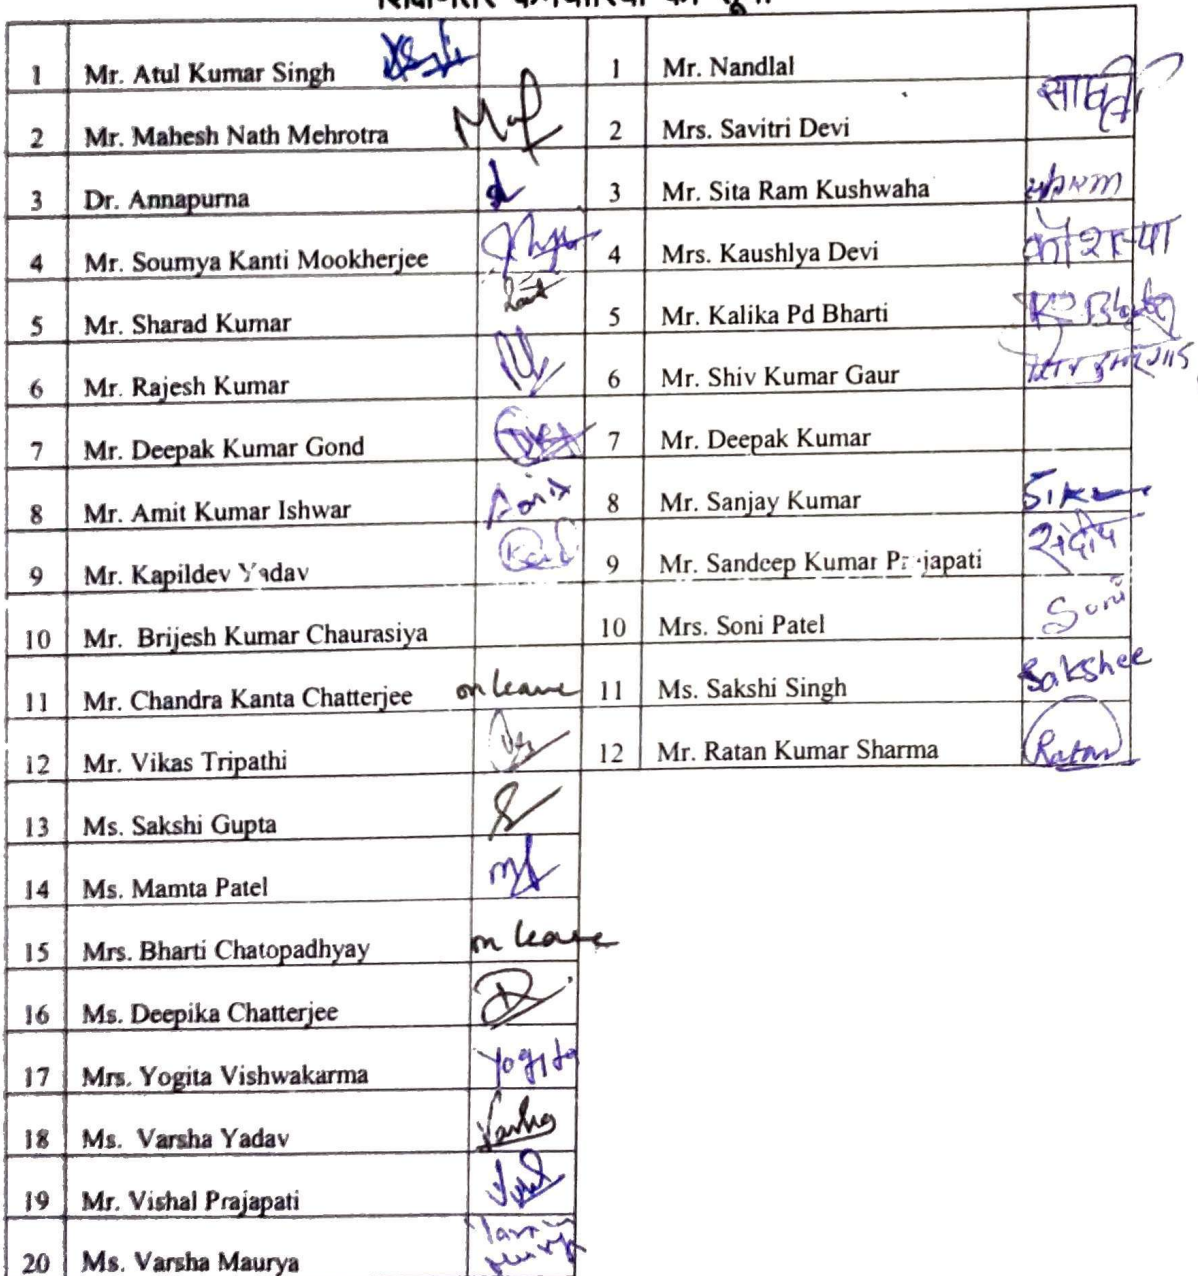 1 Mr. Atul Kumar Singh
2 Mr. Mahesh Nath Mehrotra
3 Dr. Annapurna
4 Mr. Soumya Kanti Mookherjee
5 Mr. Sharad Kumar
6 Mr. Rajesh Kumar
7 Mr. Deepak Kumar Gond
8 Mr. Amit Kumar Ishwar
9 Mr. Kapildev Yadav
10 Mr. Brijesh Kumar Chaurasiya
11 Mr. Chandra Kanta Chatterjee on leave
12 Mr. Vikas Tripathi
13 Ms. Sakshi Gupta
14 Ms. Mamta Patel
15 Mrs. Bharti Chatopadhyay on leave
16 Ms. Deepika Chatterjee
17 Mrs. Yogita Vishwakarma Yogita
18 Ms. Varsha Yadav Varsha
19 Mr. Vishal Prajapati
20 Ms. Varsha Maurya
1 Mr. Nandlal
2 Mrs. Savitri Devi
3 Mr. Sita Ram Kushwaha
4 Mrs. Kaushlya Devi
5 Mr. Kalika Pd Bharti
6 Mr. Shiv Kumar Gaur
7 Mr. Deepak Kumar
8 Mr. Sanjay Kumar
9 Mr. Sandeep Kumar Prajapati संदीप
10 Mrs. Soni Patel Soni
11 Ms. Sakshi Singh Sakshee
12 Mr. Ratan Kumar Sharma Ratan